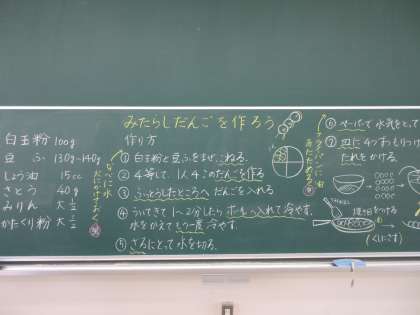 みたらしだんごを作ろう
白玉粉 100g
豆ふ 130g~140g
しょう油 15cc
さとう 40g
みりん 大1/2
かたくり粉 大1/2
なべに水
作り方
① 白玉粉と豆ふをまぜ、こねる。
② 4等して、1人4このだんごを作る
③ ふっとうしたところへだんごを入れる
④ ういてきて1~2分したらボールへ入れて冷やす。
水をかえてもう一度冷やす。
⑤ さらにとって水を切る。
フライパンに油
あたためる
⑥ ペーパーで水気をとって
⑦ 皿に4つずつもりつけ
たれをかける。